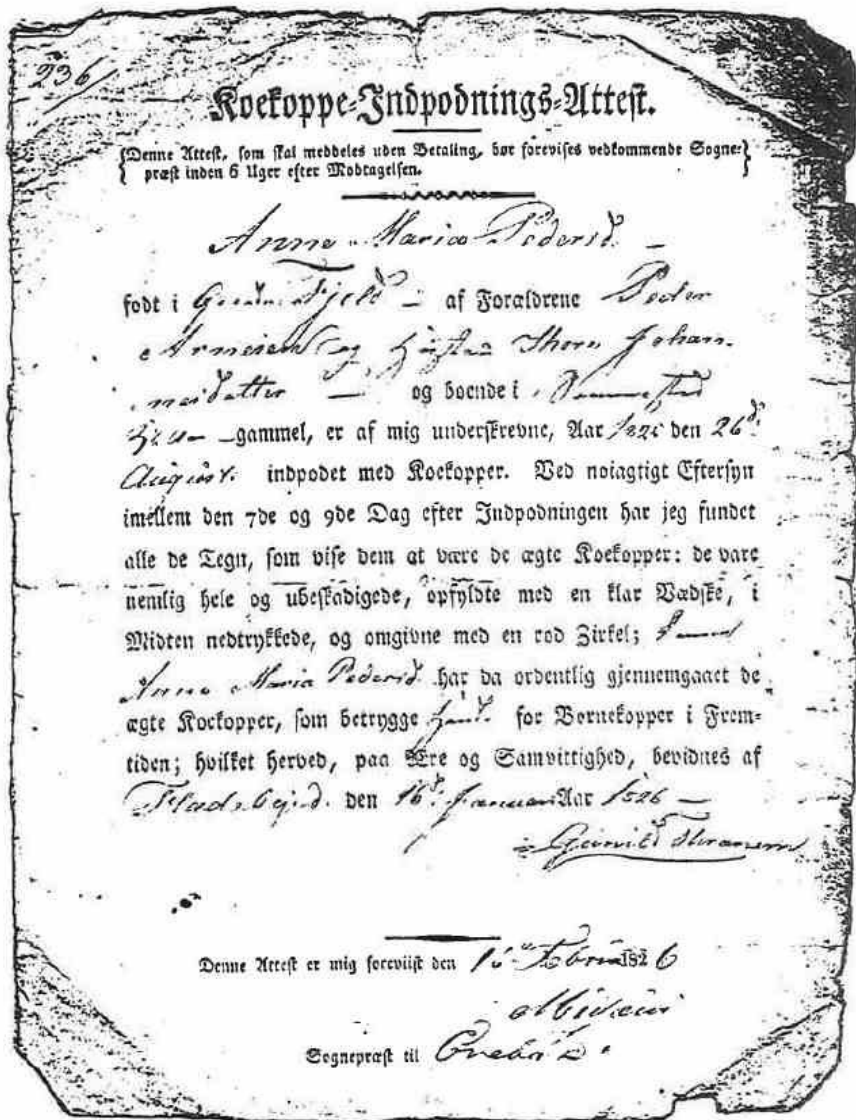 236
Koekoppe-Indpodnings-Attest.
Denne Attest, som skal meddeles uden Betaling, bør forevises vedkommende Sogne-
præst inden 6 Uger efter Modtagelsen.
Anne Maria Pedersd.
født i af Forældrene Peder
Arnesen og Hustru Thore Johan-
nesdatter og boende i Sammested
gammel, er af mig underskrevne, Aar 1825 den 26d.
August. indpodet med Koekopper. Ved nøiagtigt Eftersyn
imellem den 7de og 9de Dag efter Indpodningen har jeg fundet
alle de Tegn, som vise dem at være de ægte Koekopper: de vare
nemlig hele og ubeskadigede, opfyldte med en klar Vædske, i
Midten nedtrykkede, og omgivne med en rød Zirkel;
Anne Maria Pedersd. har da ordentlig gjennemgaaet de
ægte Koekopper, som betrygge for Børnekopper i Frem-
tiden; hvilket herved, paa Ære og Samvittighed, bevidnes af
den 16d. Januari Aar 1826
Denne Attest er mig foreviist den 1826
Sognepræst til